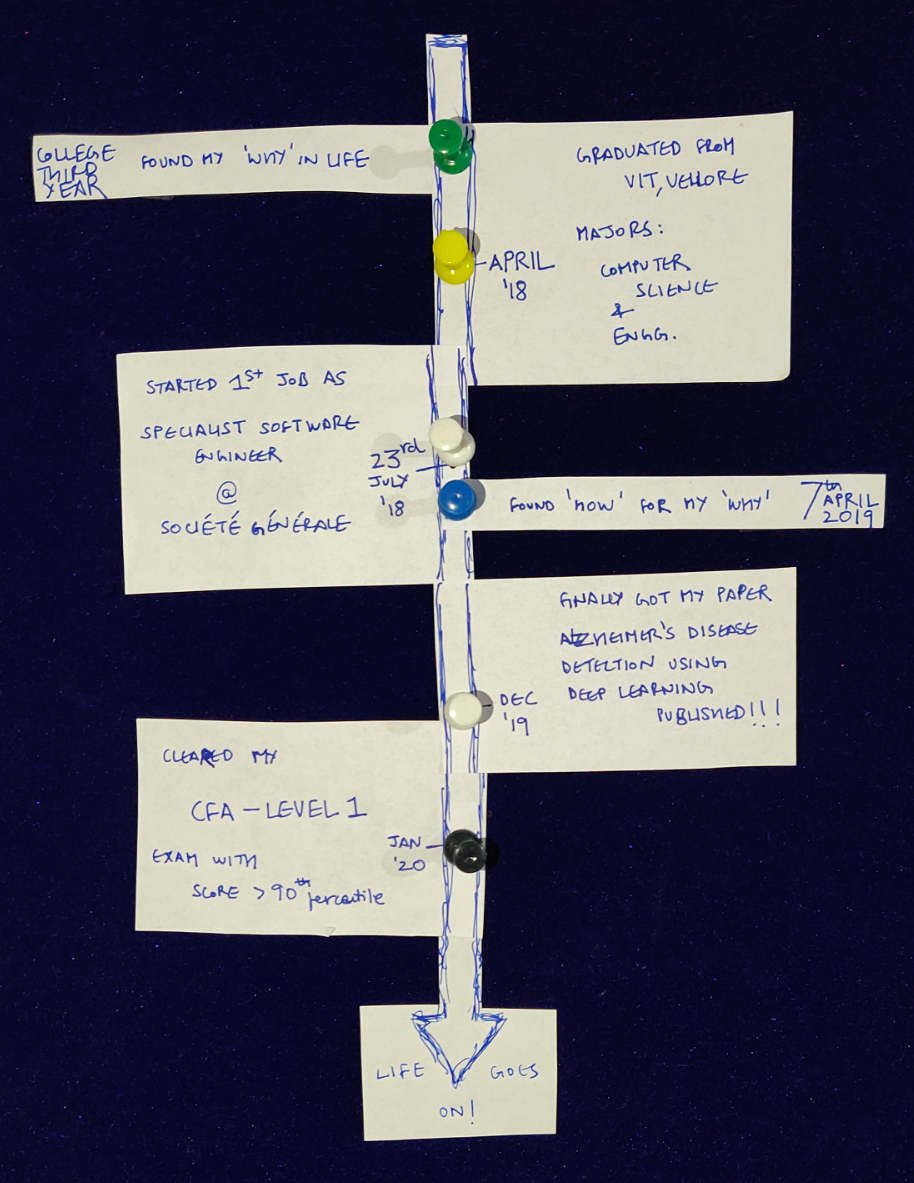 COLLEGE
THIRD
YEAR
FOUND MY 'WHY' IN LIFE
GRADUATED FROM
VIT, VELLORE
MAJORS:
COMPUTER
SCIENCE
&
ENGG.
APRIL
'18
STARTED 1st JOB AS
SPECIALIST SOFTWARE
ENGINEER
@
SOCIÉTÉ GÉNÉRALE
23rd
JULY
'18
FOUND 'HOW' FOR MY 'WHY'
7th
APRIL
2019
FINALLY GOT MY PAPER
ALZHEIMER'S DISEASE
DETECTION USING
DEEP LEARNING
PUBLISHED!!!
DEC
'19
CLEARED MY
CFA - LEVEL 1
EXAM WITH
SCORE > 90th percentile
JAN
'20
LIFE GOES
ON!